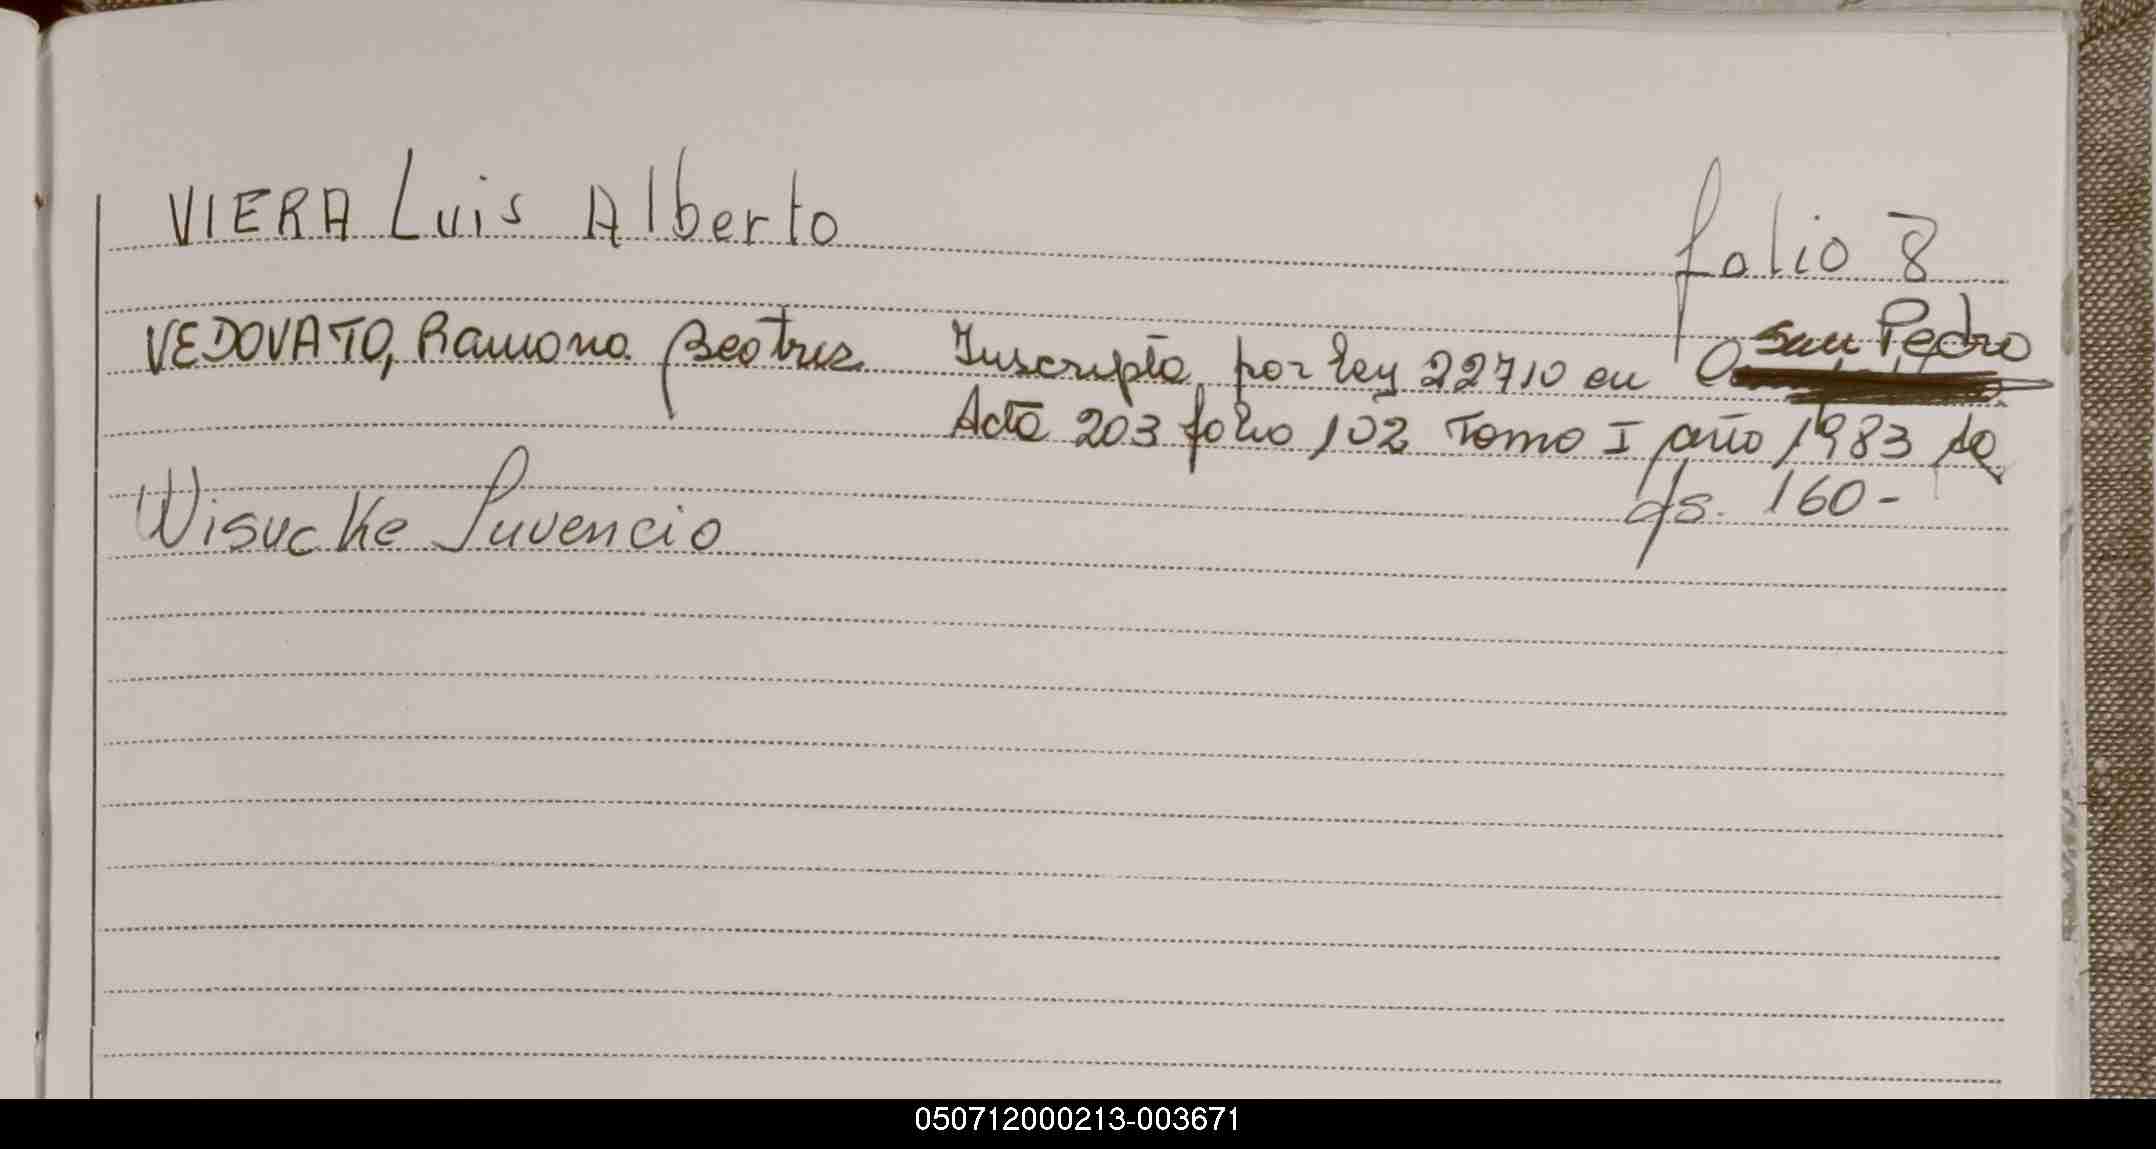 VIERA Luis Alberto folio 8
VEDOVATO, Ramona Beatriz Inscripta por Ley 22710 en San Pedro
Acta 203 folio 102 Tomo I año 1983 de
Wisucke Juvencio fs. 160-
050712000213-003671